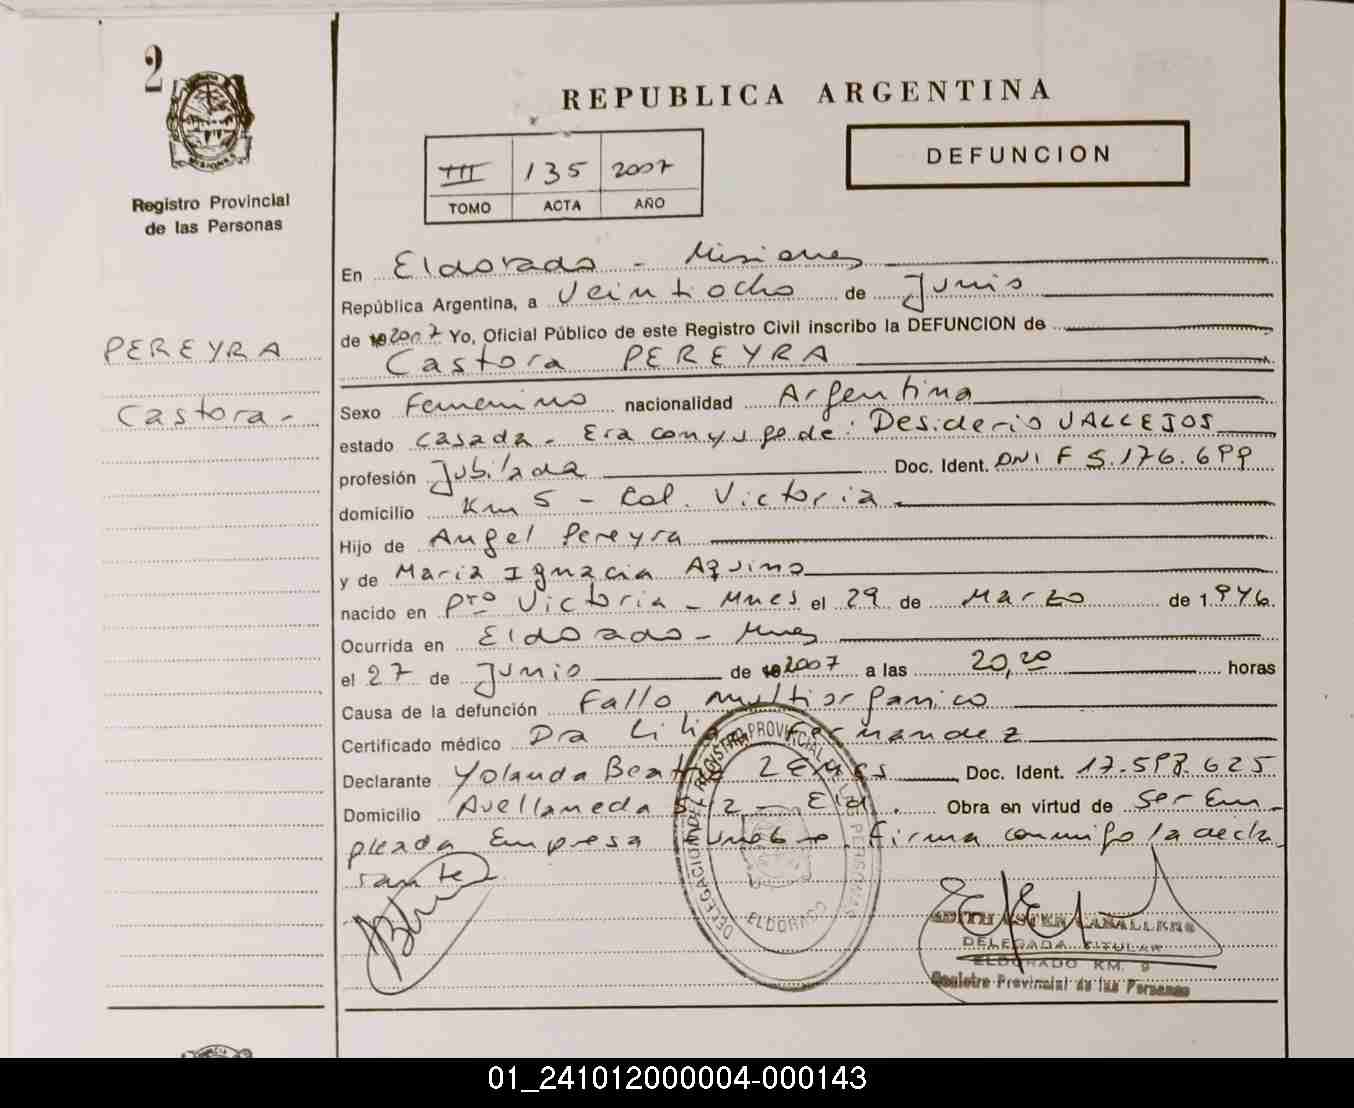 2
REPUBLICA ARGENTINA
III 135 2007
TOMO ACTA AÑO
DEFUNCION
MISIONES
Registro Provincial
de las Personas
PEREYRA
Castora -
En Eldorado - Misiones
República Argentina, a Veintiocho de Junio
de 2007 Yo, Oficial Público de este Registro Civil inscribo la DEFUNCION de
Castora PEREYRA
Sexo Femenino nacionalidad Argentina
estado Casada - Era conyuge de: Desiderio VALLEJOS
profesión Jubilada Doc. Ident. DNI F 5.176.699
domicilio Km 5 - Col. Victoria
Hijo de Angel Pereyra
y de Maria Ignacia Aquino
nacido en Pto Victoria - Mnes el 29 de Marzo de 1946
Ocurrida en Eldorado - Mnes
el 27 de Junio de 2007 a las 20,20 horas
Causa de la defunción Fallo multiorganico
Certificado médico Dra Fernandez
Declarante Yolanda Doc. Ident. 17.598.625
Domicilio Avellaneda Eld. Obra en virtud de Ser Em-
pleada Empresa Firma conmigo la decla
rante
DELEGACION DEL REGISTRO PROVINCIAL DE LAS PERSONAS
ELDORADO
EDITH ESTER CABALLERO
DELEGADA TITULAR
ELDORADO KM. 9
Registro Provincial de las Personas
01_241012000004-000143